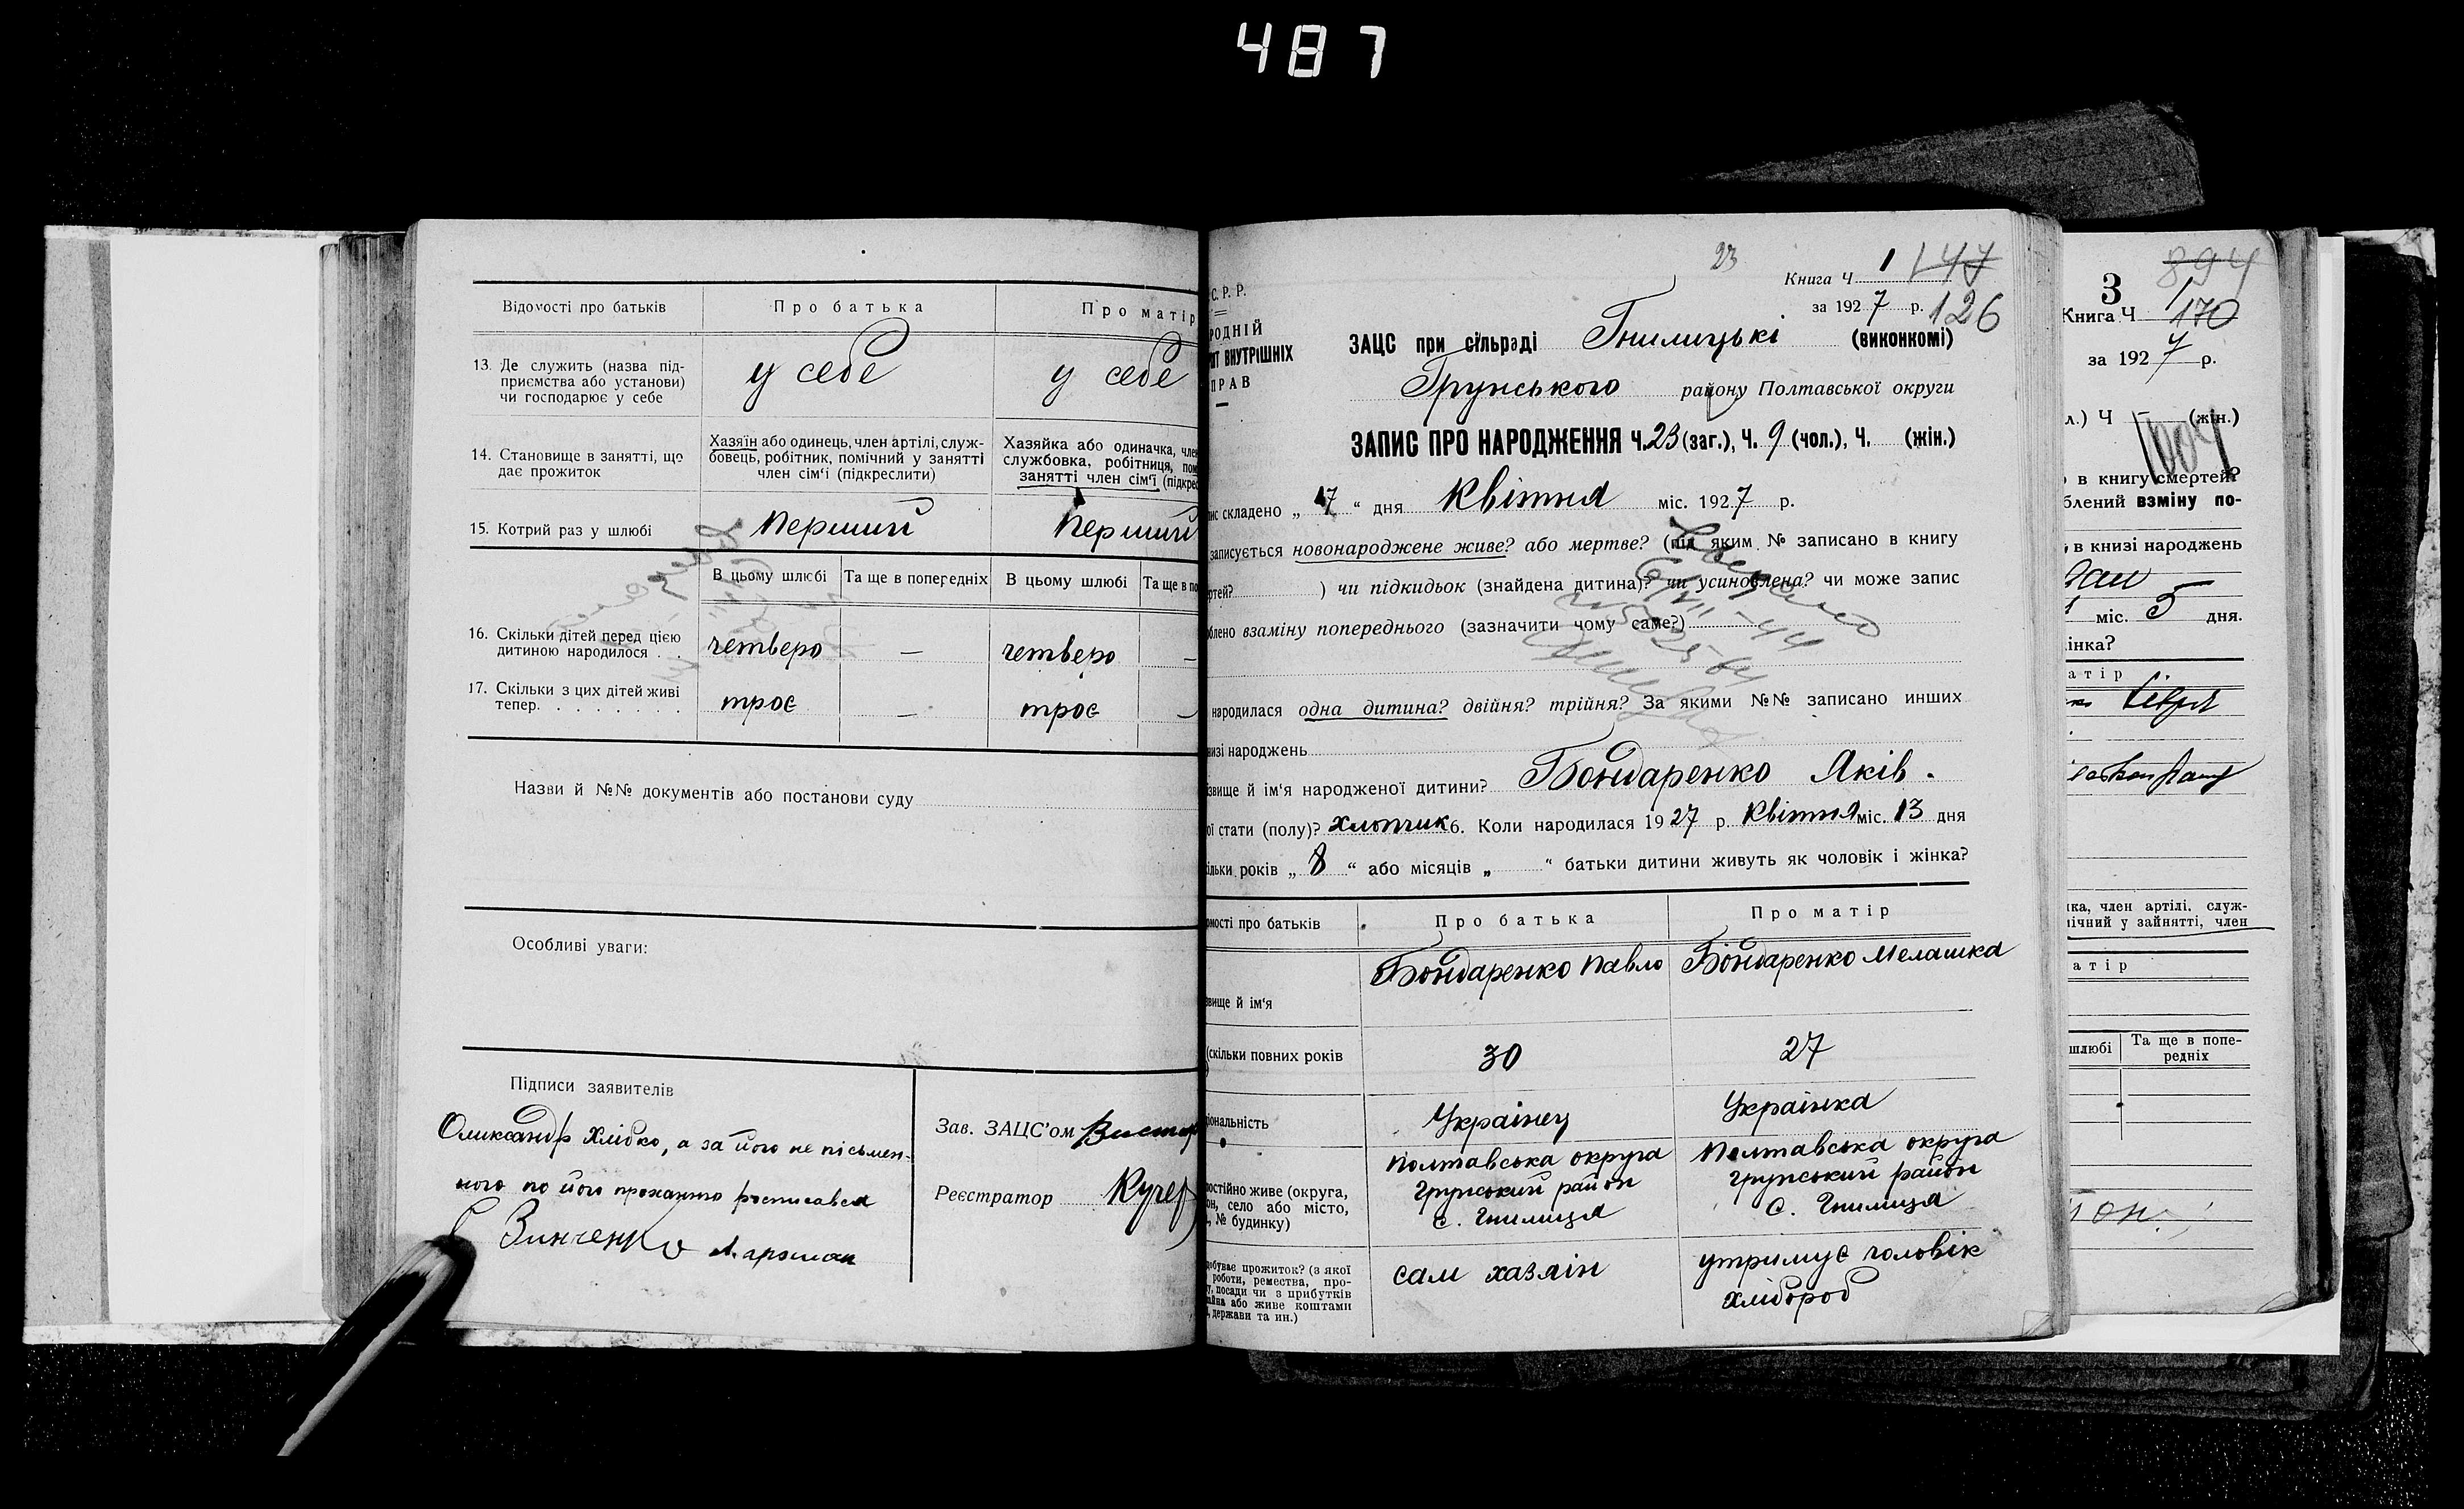 487
Відомості про батьків
Про батька
Про матір
13. Де служить (назва під-
приємства або установи)
чи господарює у себе
у себе
у себе
14. Становище в занятті, що
дає прожиток
Хазяїн або одинець, член артілі, служ-
бовець, робітник, помічний у занятті
член сім'ї (підкреслити)
Хазяйка або одиначка, член
службовка, робітниця, пом
занятті член сім'ї (підкрес
15. Котрий раз у шлюбі
перший
перший
В цьому шлюбі
Та ще в попередніх
В цьому шлюбі
Та ще в по
16. Скільки дітей перед цією
дитиною народилося . .
четверо
—
четверо
—
17. Скільки з цих дітей живі
тепер. . . . . . . .
троє
—
троє
—
Назви й №№ документів або постанови суду
Особливі уваги:
Підписи заявителів
Олександр Хлібко, а за його не písьмен-
ного по його проханню росписався
Зинченко
Зав. ЗАЦС'ом
Реєстратор Кучер
23
Книга Ч. 1 147
за 1927 р. 126
С. Р. Р.
РОДНІЙ
ВНУТРІШНІХ
ПРАВ
ЗАЦС при сільраді Гнилицькі (виконкомі)
Грунського району Полтавської округи
ЗАПИС ПРО НАРОДЖЕННЯ Ч. 23 (заг.), Ч. 9 (чол.), Ч. (жін.)
пис складено „17“ дня квітня міс. 1927 р.
записується новонароджене живе? або мертве? (під яким № записано в книгу
ртей? ) чи підкидьок (знайдена дитина)? чи усиновлена? чи може запис
блено взаміну попереднього (зазначити чому саме?)
народилася одна дитина? двійня? трійня? За якими №№ записано инших
низі народжень
звище й ім'я народженої дитини? Бондаренко Яків.
ої стати (полу)? хлопчик 6. Коли народилася 1927 р. квітня міс. 13 дня
ільки років „8“ або місяців „ “ батьки дитини живуть як чоловік і жінка?
омості про батьків
Про батька
Про матір
звище й ім'я
Бондаренко Павло
Бондаренко Мелашка
(скільки повних років
30
27
ціональність
Українец
Українка
постійно живе (округа,
он, село або місто,
, № будинку)
Полтавська округа
грунський район
с. Гнилиця
Полтавська округа
грунський район
с. Гнилиця
добуває прожиток? (з якої
роботи, ремества, про-
у, посади чи з прибутків
айна або живе коштами
, держави та ин.)
сам хазяін
утримує чоловік
хлібороб
3
894
Книга Ч. 1
170
за 1927 р.
л.) Ч (жін.)
в книгу смертей?
блений взміну по-
в книзі народжень
міс. 5 дня.
інка?
атір
ка, член артілі, служ-
ічний у зайнятті, член
атір
шлюбі
Та ще в попе-
редніх